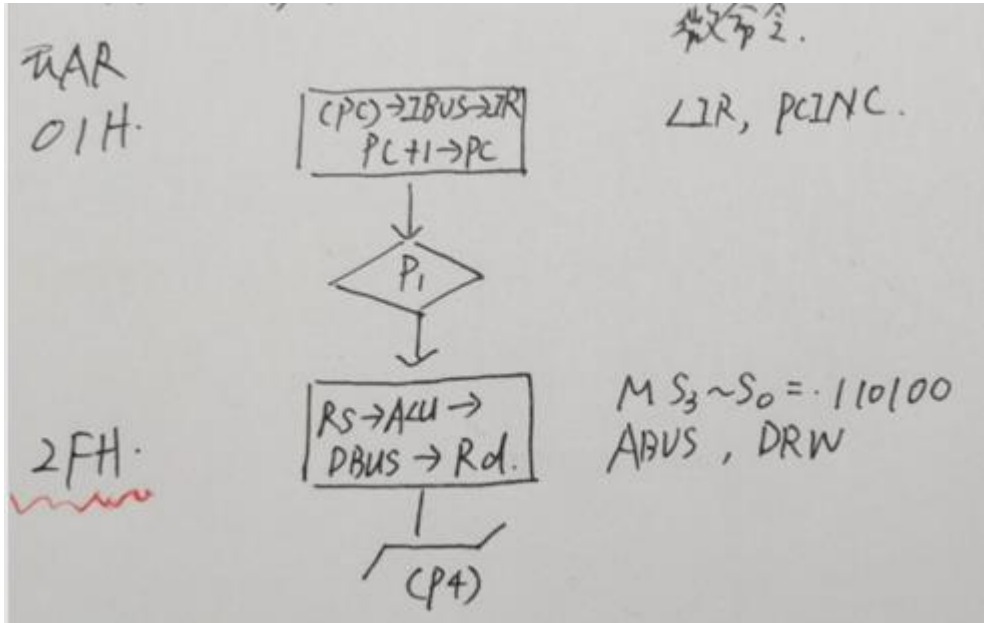 微命令.
μAR
01H.
(PC)→IBUS→IR
PC+1→PC
LIR, PCINC.
P1
2FH.
RS→ALU→
DBUS→Rd.
M S3~S0=.110100
ABUS, DRW
(P4)